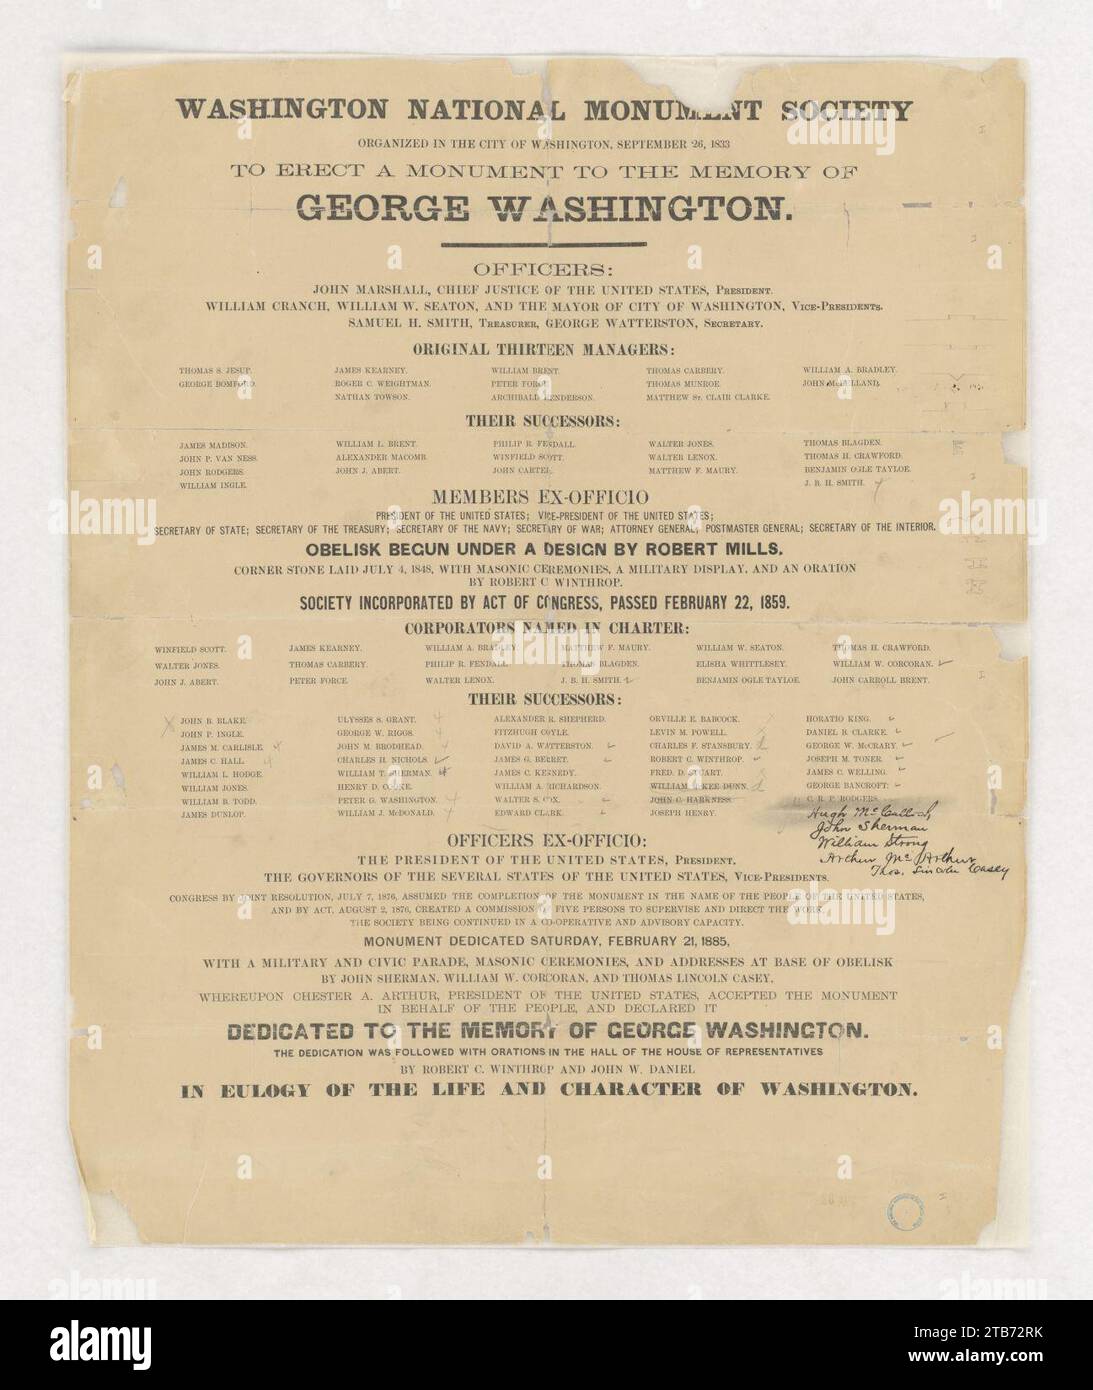 WASHINGTON NATIONAL MONUMENT SOCIETY
ORGANIZED IN THE CITY OF WASHINGTON, SEPTEMBER 26, 1833
TO ERECT A MONUMENT TO THE MEMORY OF
GEORGE WASHINGTON.
OFFICERS:
JOHN MARSHALL, CHIEF JUSTICE OF THE UNITED STATES, PRESIDENT.
WILLIAM CRANCH, WILLIAM W. SEATON, AND THE MAYOR OF CITY OF WASHINGTON, VICE-PRESIDENTS.
SAMUEL H. SMITH, TREASURER, GEORGE WATTERSTON, SECRETARY.
ORIGINAL THIRTEEN MANAGERS:
THOMAS S. JESUP. JAMES KEARNEY. WILLIAM BRENT. THOMAS CARBERY. WILLIAM A. BRADLEY.
GEORGE BOMFORD. ROGER C. WEIGHTMAN. PETER FORCE. THOMAS MUNROE. JOHN McLELLAND.
NATHAN TOWSON. ARCHIBALD HENDERSON. MATTHEW ST. CLAIR CLARKE.
THEIR SUCCESSORS:
JAMES MADISON. WILLIAM L. BRENT. PHILIP R. FENDALL. WALTER JONES. THOMAS BLAGDEN.
JOHN P. VAN NESS. ALEXANDER MACOMB. WINFIELD SCOTT. WALTER LENOX. THOMAS H. CRAWFORD.
JOHN RODGERS. JOHN J. ABERT. JOHN CARTER. MATTHEW F. MAURY. BENJAMIN OGLE TAYLOE.
WILLIAM INGLE. J. B. H. SMITH.
MEMBERS EX-OFFICIO
PRESIDENT OF THE UNITED STATES; VICE-PRESIDENT OF THE UNITED STATES;
SECRETARY OF STATE; SECRETARY OF THE TREASURY; SECRETARY OF THE NAVY; SECRETARY OF WAR; ATTORNEY GENERAL; POSTMASTER GENERAL; SECRETARY OF THE INTERIOR.
OBELISK BEGUN UNDER A DESIGN BY ROBERT MILLS.
CORNER STONE LAID JULY 4, 1848, WITH MASONIC CEREMONIES, A MILITARY DISPLAY, AND AN ORATION
BY ROBERT C. WINTHROP.
SOCIETY INCORPORATED BY ACT OF CONGRESS, PASSED FEBRUARY 22, 1859.
CORPORATORS NAMED IN CHARTER:
WINFIELD SCOTT. JAMES KEARNEY. WILLIAM A. BRADLEY. MATTHEW F. MAURY. WILLIAM W. SEATON. THOMAS H. CRAWFORD.
WALTER JONES. THOMAS CARBERY. PHILIP R. FENDALL. THOMAS BLAGDEN. ELISHA WHITTLESEY. WILLIAM W. CORCORAN.
JOHN J. ABERT. PETER FORCE. WALTER LENOX. J. B. H. SMITH. BENJAMIN OGLE TAYLOE. JOHN CARROLL BRENT.
THEIR SUCCESSORS:
JOHN B. BLAKE. ULYSSES S. GRANT. ALEXANDER R. SHEPHERD. ORVILLE E. BABCOCK. HORATIO KING.
JOHN P. INGLE. GEORGE W. RIGGS. FITZHUGH COYLE. LEVIN M. POWELL. DANIEL B. CLARKE.
JAMES M. CARLISLE. JOHN M. BRODHEAD. DAVID A. WATTERSTON. CHARLES F. STANSBURY. GEORGE W. McCRARY.
JAMES C. HALL. CHARLES H. NICHOLS. JAMES G. BERRET. ROBERT C. WINTHROP. JOSEPH M. TONER.
WILLIAM L. HODGE. WILLIAM T. SHERMAN. JAMES C. KENNEDY. FRED. D. STUART. JAMES C. WELLING.
WILLIAM JONES. HENRY D. COOKE. WILLIAM A. RICHARDSON. WILLIAM McKEE DUNN. GEORGE BANCROFT.
WILLIAM B. TODD. PETER G. WASHINGTON. WALTER S. COX. JOHN C. HARKNESS. C. R. P. RODGERS.
JAMES DUNLOP. WILLIAM J. McDONALD. EDWARD CLARK. JOSEPH HENRY. Hugh McCulloch
John Sherman
William Strong
Arthur McArthur
Thos. Lincoln Casey
OFFICERS EX-OFFICIO:
THE PRESIDENT OF THE UNITED STATES, PRESIDENT.
THE GOVERNORS OF THE SEVERAL STATES OF THE UNITED STATES, VICE-PRESIDENTS.
CONGRESS BY JOINT RESOLUTION, JULY 7, 1876, ASSUMED THE COMPLETION OF THE MONUMENT IN THE NAME OF THE PEOPLE OF THE UNITED STATES,
AND BY ACT, AUGUST 2, 1876, CREATED A COMMISSION OF FIVE PERSONS TO SUPERVISE AND DIRECT THE WORK,
THE SOCIETY BEING CONTINUED IN A CO-OPERATIVE AND ADVISORY CAPACITY.
MONUMENT DEDICATED SATURDAY, FEBRUARY 21, 1885,
WITH A MILITARY AND CIVIC PARADE, MASONIC CEREMONIES, AND ADDRESSES AT BASE OF OBELISK
BY JOHN SHERMAN, WILLIAM W. CORCORAN, AND THOMAS LINCOLN CASEY,
WHEREUPON CHESTER A. ARTHUR, PRESIDENT OF THE UNITED STATES, ACCEPTED THE MONUMENT
IN BEHALF OF THE PEOPLE, AND DECLARED IT
DEDICATED TO THE MEMORY OF GEORGE WASHINGTON.
THE DEDICATION WAS FOLLOWED WITH ORATIONS IN THE HALL OF THE HOUSE OF REPRESENTATIVES
BY ROBERT C. WINTHROP AND JOHN W. DANIEL
IN EULOGY OF THE LIFE AND CHARACTER OF WASHINGTON.
alamy
Image ID: 2TB72RK
www.alamy.com